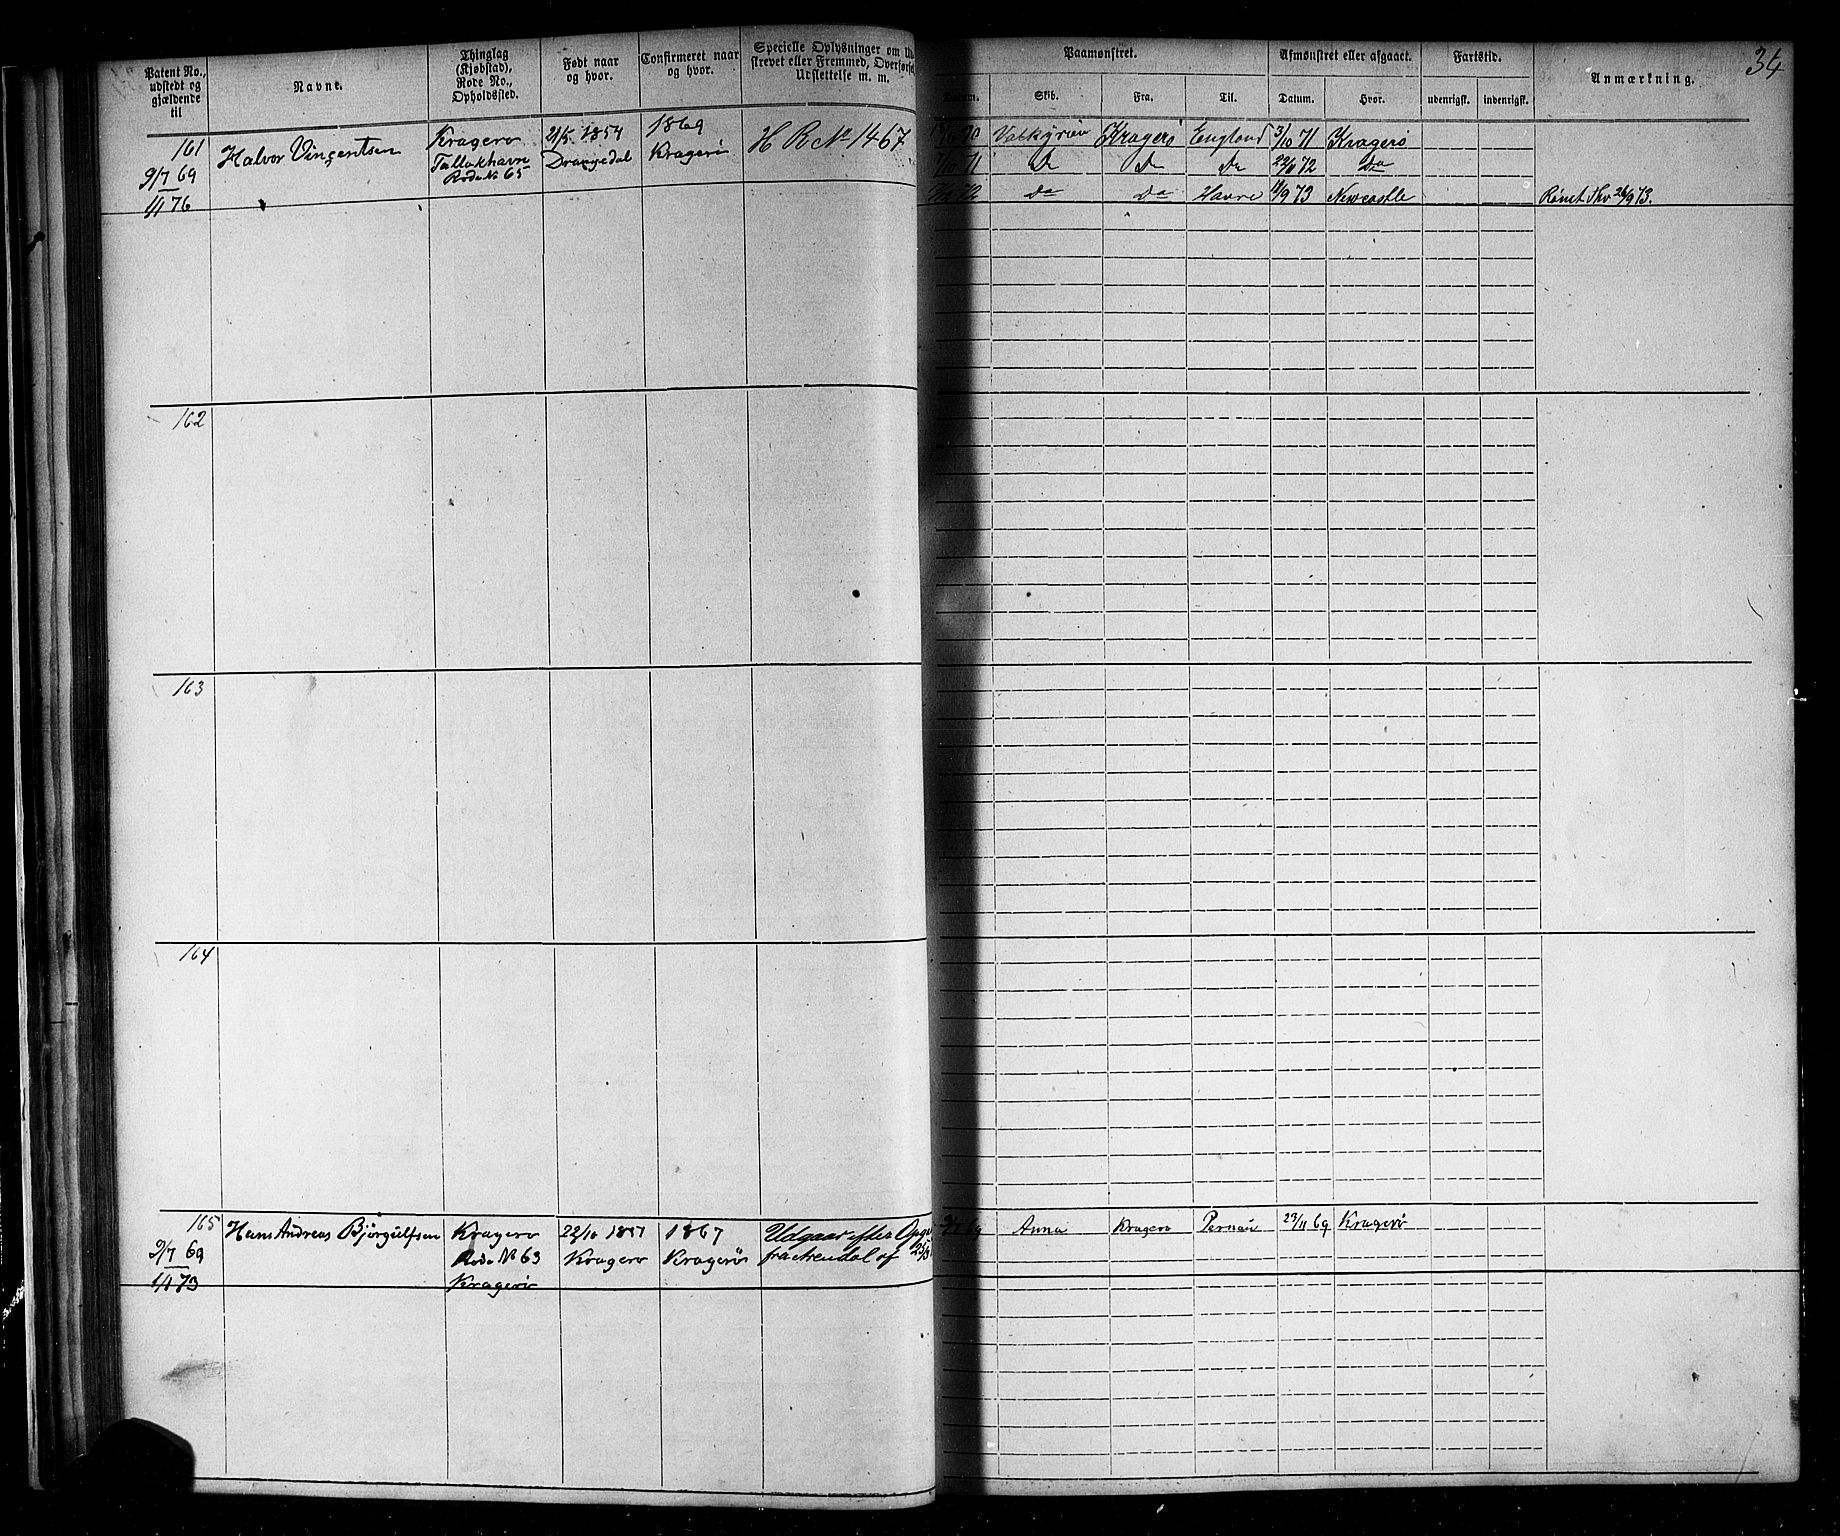 34
Patent No., udstedt og gjældende til
Navne.
Thinglag (Kjøbstad), Rode No., Opholdssted.
Født naar og hvor.
Confirmeret naar og hvor.
Specielle Oplysninger om Ud- strevet eller Fremmed, Overførsel, Udslettelse m. m.
Paamønstret.
Afmønstret eller afgaaet.
Fartstid.
Anmærkning.
Datum. Skib. Fra. Til. Datum. Hvor. udenrigsk. indenrigsk.
161 Halvor Vincentsen Kragerø 21/5 1854 1869 H R No 1467 70 Valkyrien Kragerø England 3/10 71 Kragerø
9/7 69 Tallakshavn Drangedal Kragerø 71 Do Do Do 22/8 72 Do
1/1 76 Rode No 65 72 Do Do Havre 11/9 73 Newcastle Rømt Thv 26/9 73.
162
163
164
165 Hans Andreas Bjørgulfsen Kragerø 22/10 1851 1867 Udgaar efter Opgv 9/7 69 Anna Kragerø Pernau 23/11 69 Kragerø
9/7 69 Rode No 63 Kragerø Kragerø fra Arendal af
1/1 73 Kragerø